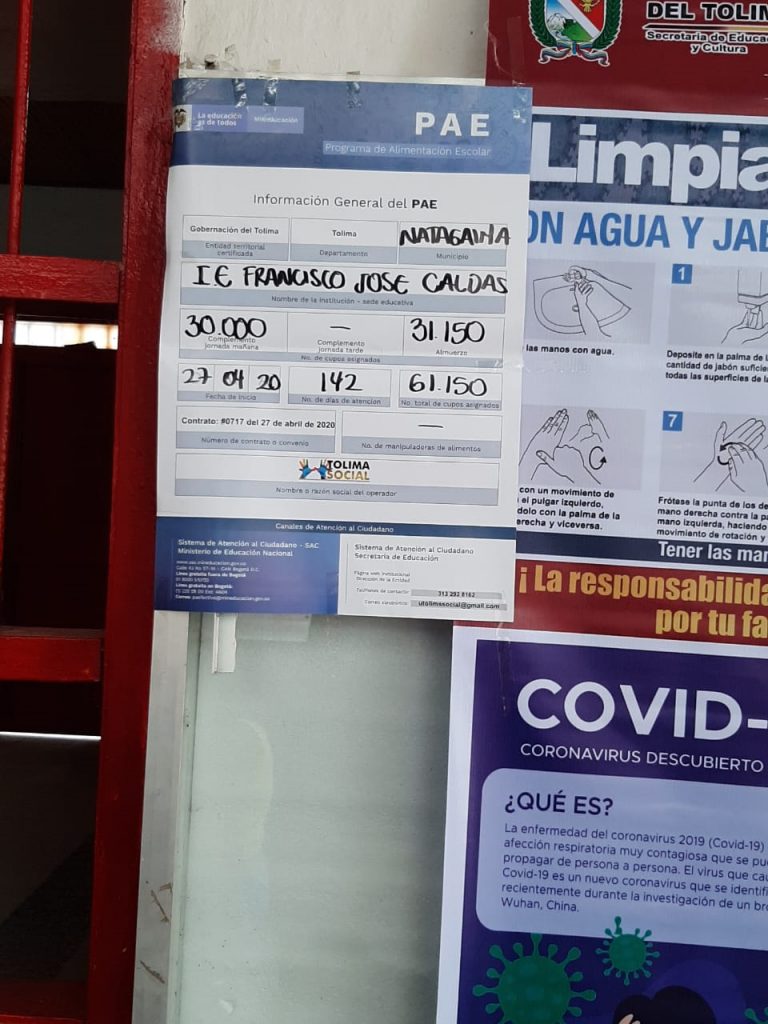 DEL TOLIM
Secretaría de Educa
y Cultura
La educación
es de todos
Mineducación
PAE
Programa de Alimentación Escolar
Información General del PAE
Gobernación del Tolima
Entidad territorial
certificada
Tolima
Departamento
NATAGAIMA
Municipio
I E FRANCISCO JOSE CALDAS
Nombre de la institución - sede educativa
30.000
Complemento
jornada mañana
—
Complemento
jornada tarde
31.150
Almuerzo
No. de cupos asignados
27 04 20
Fecha de inicio
142
No. de días de atención
61.150
No. total de cupos asignados
Contrato: #0717 del 27 de abril de 2020
Número de contrato o convenio
—
No. de manipuladoras de alimentos
TOLIMA
SOCIAL
Nombre o razón social del operador
Canales de Atención al Ciudadano
Sistema de Atención al Ciudadano - SAC
Ministerio de Educación Nacional
Línea gratuita fuera de Bogotá:
Línea gratuita en Bogotá:
Sistema de Atención al Ciudadano
Secretaría de Educación
Página web institucional
Dirección de la Entidad
Teléfonos de contacto
313 292 8162
Correo electrónico
utolimasocial@gmail.com
Limpia
ON AGUA Y JAB
las manos con agua.
1
Deposite en la palma de la
cantidad de jabón suficien
todas las superficies de la
con un movimiento de
el pulgar izquierdo,
dolo con la palma de la
erecha y viceversa.
7
Frótese la punta de los de
mano derecha contra la pa
mano izquierda, haciendo
movimiento de rotación y
Tener las man
¡ La responsabilida
por tu fa
COVID-
CORONAVIRUS DESCUBIERTO
¿QUÉ ES?
La enfermedad del coronavirus 2019 (Covid-19)
afección respiratoria muy contagiosa que se pue
propagar de persona a persona. El virus que cau
Covid-19 es un nuevo coronavirus que se identifi
recientemente durante la investigación de un bro
Wuhan, China.